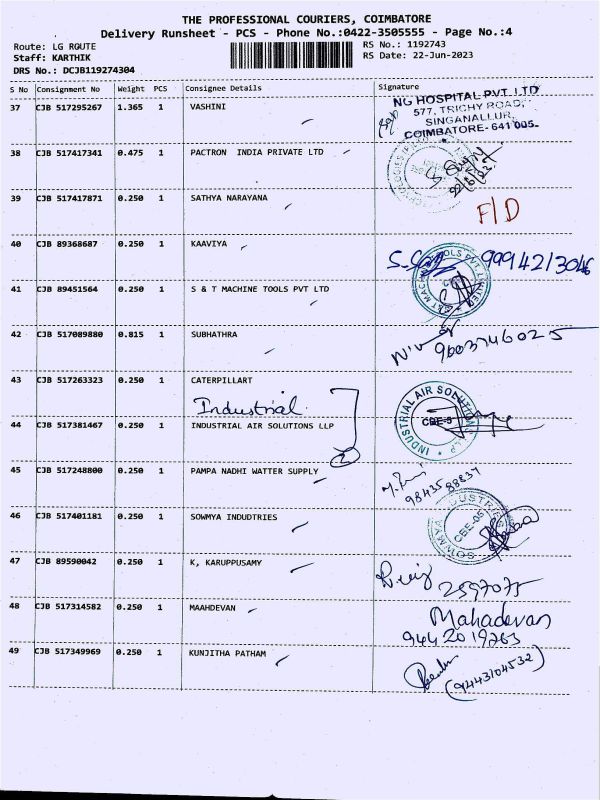 THE PROFESSIONAL COURIERS, COIMBATORE
Delivery Runsheet - PCS - Phone No.:0422-3505555 - Page No.:4
Route: LG ROUTE
RS No.: 1192743
Staff: KARTHIK
RS Date: 22-Jun-2023
DRS No.: DCJB119274304
S No Consignment No Weight PCS Consignee Details Signature
37 CJB 517295267 1.365 1 VASHINI
NG HOSPITAL PVT. LTD
577, TRICHY ROAD,
SINGANALLUR,
COIMBATORE- 641 005.
38 CJB 517417341 0.475 1 PACTRON INDIA PRIVATE LTD
39 CJB 517417871 0.250 1 SATHYA NARAYANA
F/D
40 CJB 89368687 0.250 1 KAAVIYA
9994213046
41 CJB 89451564 0.250 1 S & T MACHINE TOOLS PVT LTD
42 CJB 517089880 0.815 1 SUBHATHRA
9603746025
43 CJB 517263323 0.250 1 CATERPILLART
Industrial
INDUSTRIAL AIR SOLUTIONS LLP
CBE-5
44 CJB 517381467 0.250 1 INDUSTRIAL AIR SOLUTIONS LLP
2
45 CJB 517248800 0.250 1 PAMPA NADHI WATTER SUPPLY
9843588837
46 CJB 517401181 0.250 1 SOWMYA INDUDTRIES
SOWMYA INDUSTRIES
CBE-05
47 CJB 89590042 0.250 1 K, KARUPPUSAMY
2597075
48 CJB 517314582 0.250 1 MAAHDEVAN
Mahadevan
9442019263
49 CJB 517349969 0.250 1 KUNJITHA PATHAM
(9443104532)